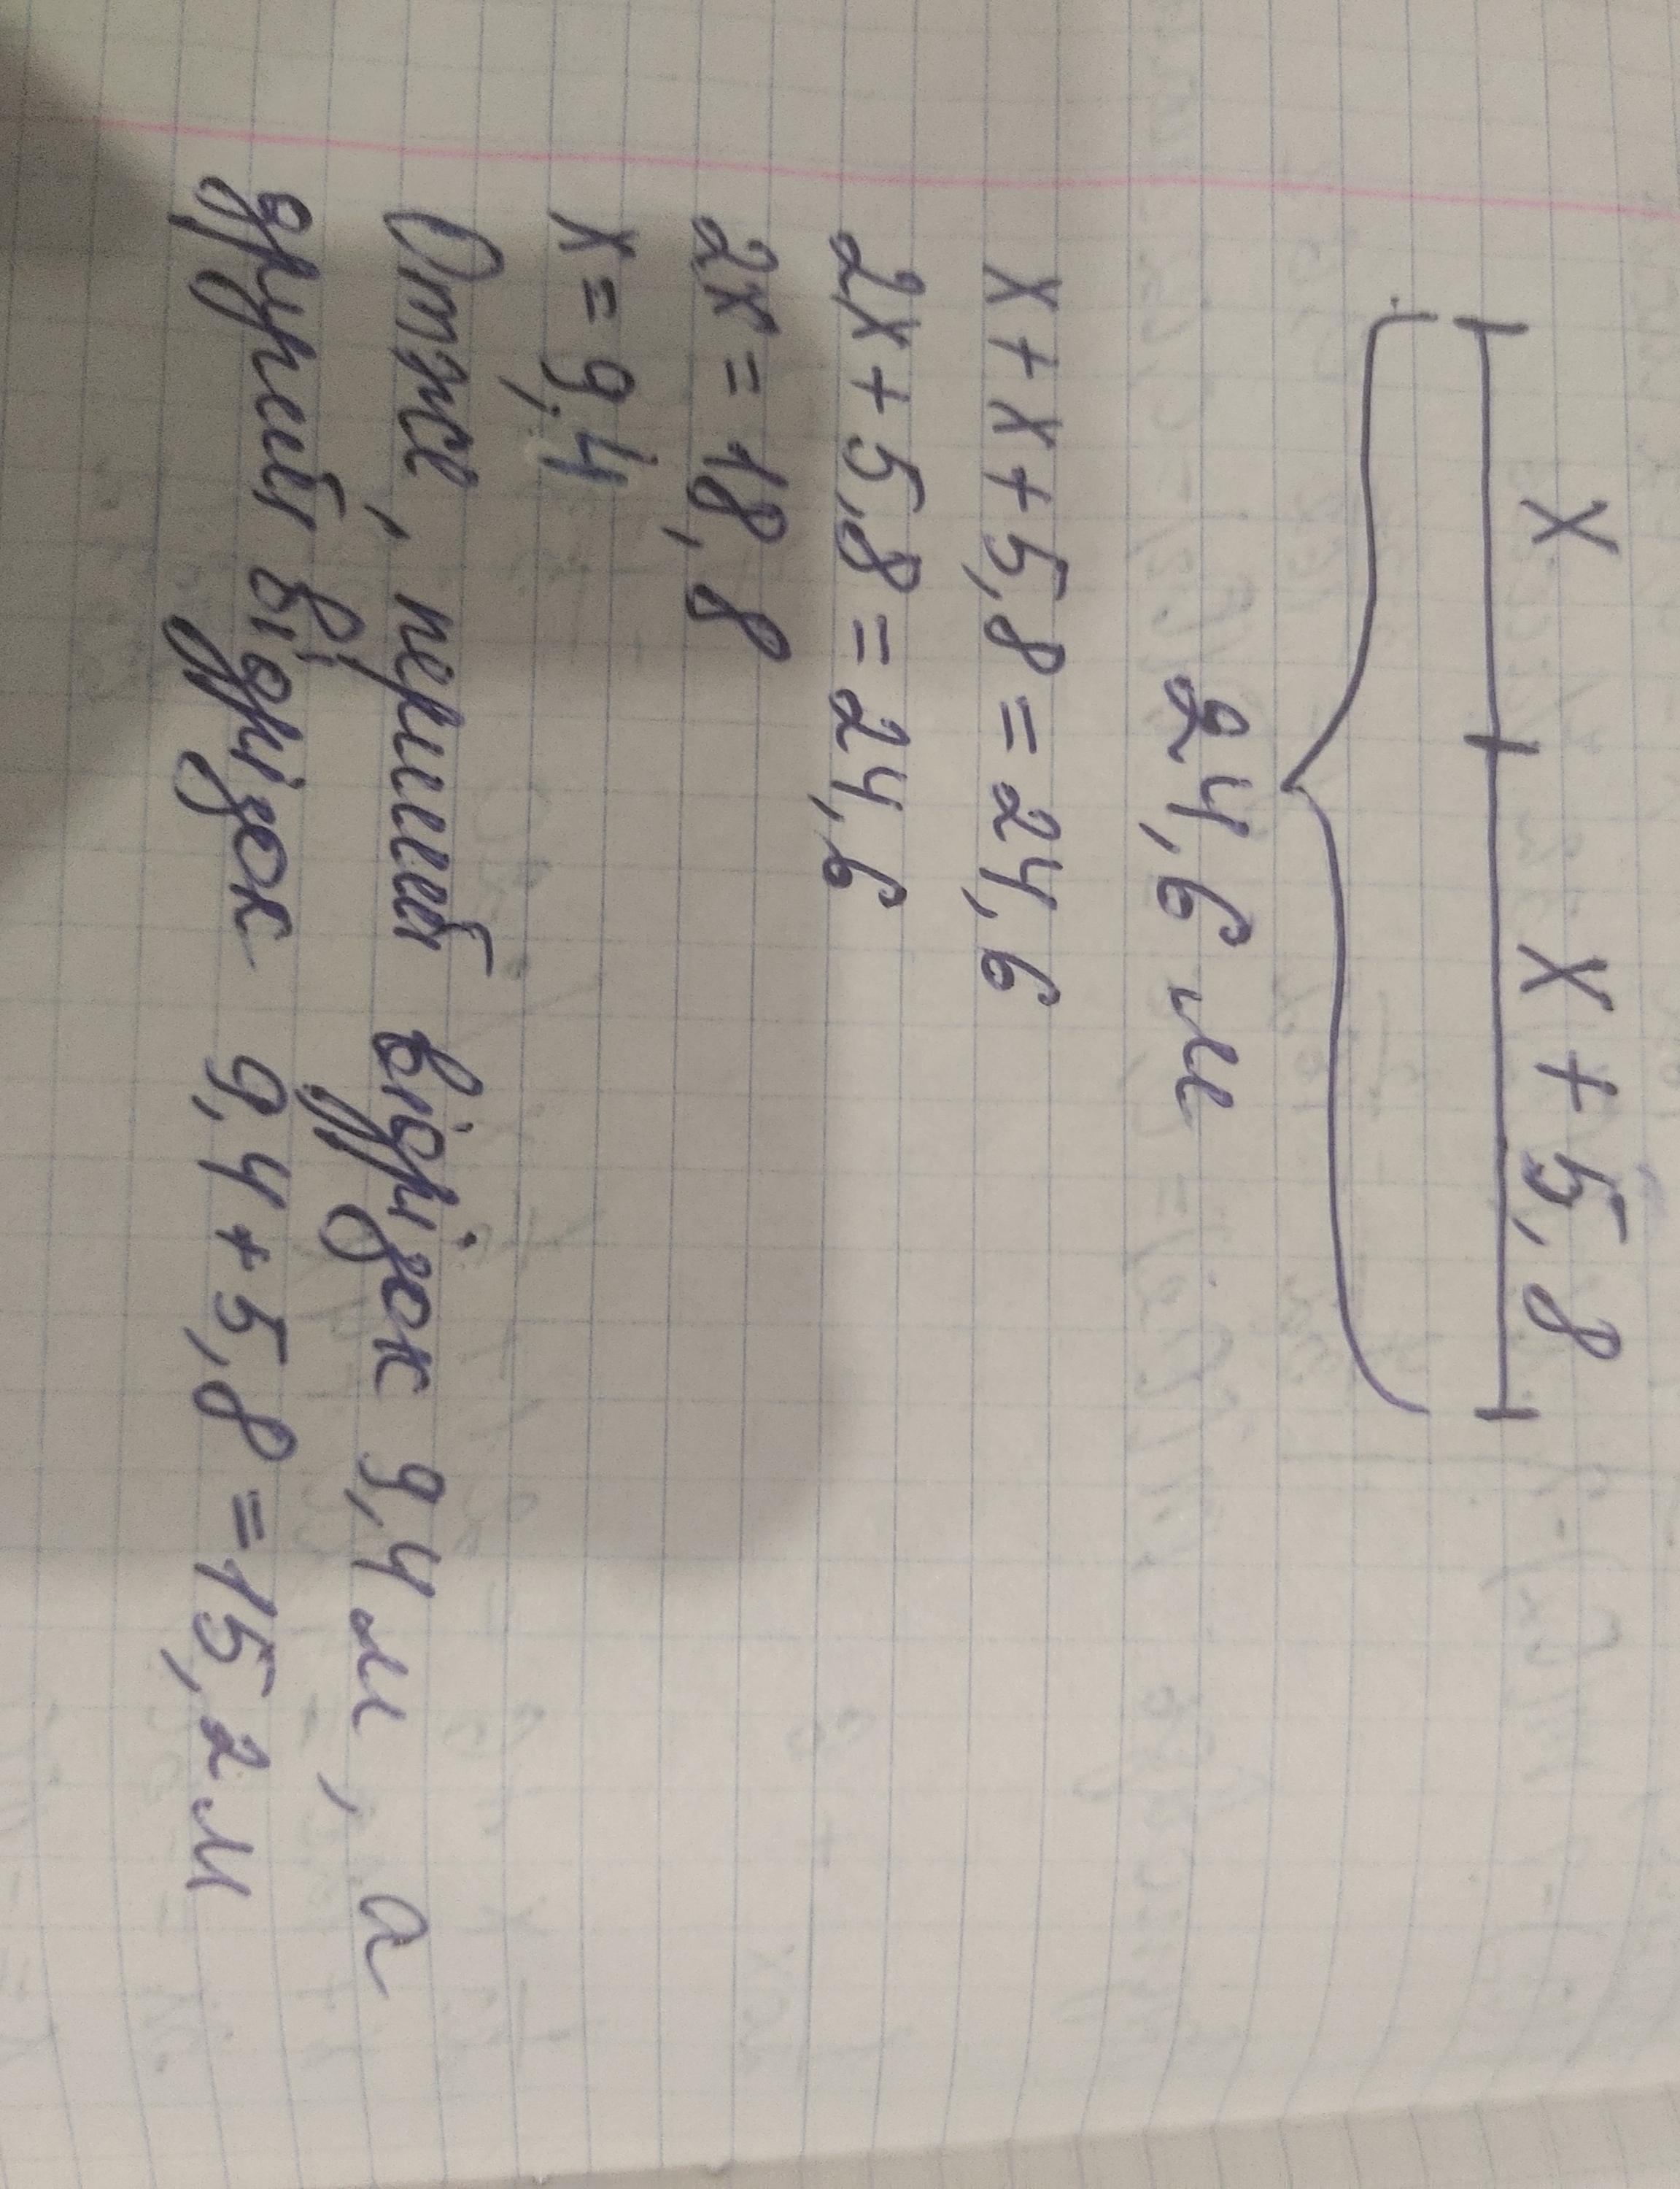 x x + 5,8
24,6 м
x + x + 5,8 = 24,6
2x + 5,8 = 24,6
2x = 18,8
x = 9,4
Отже, перший відрізок 9,4 м, а
другий відрізок 9,4 + 5,8 = 15,2 м